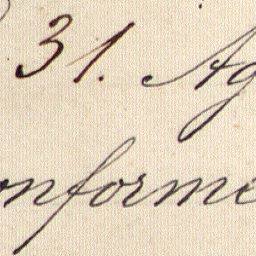 31. Ag
onforme